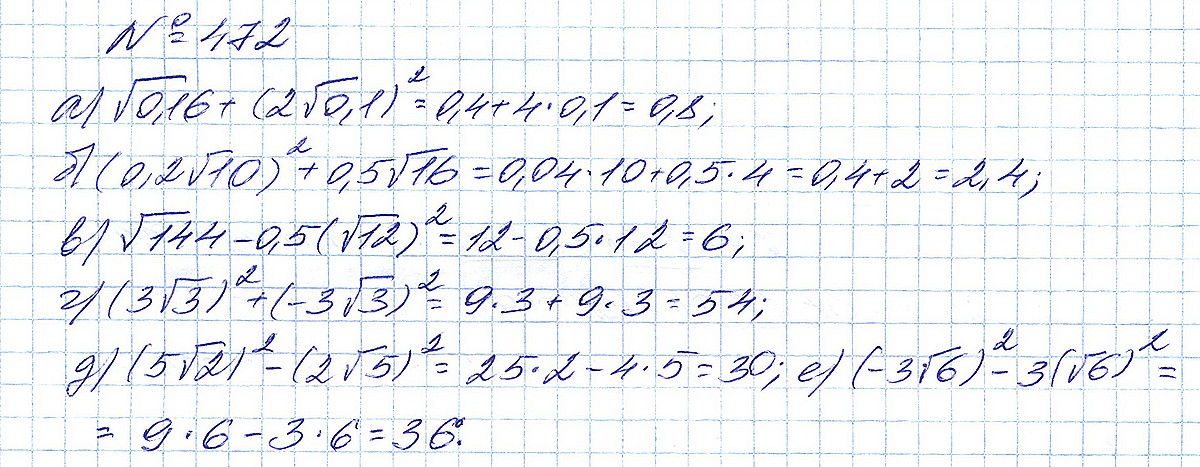 № 472
а) √0,16 + (2√0,1)² = 0,4 + 4·0,1 = 0,8;
б) (0,2√10)² + 0,5√16 = 0,04·10 + 0,5·4 = 0,4 + 2 = 2,4;
в) √144 - 0,5(√12)² = 12 - 0,5·12 = 6;
г) (3√3)² + (-3√3)² = 9·3 + 9·3 = 54;
д) (5√2)² - (2√5)² = 25·2 - 4·5 = 30; е) (-3√6)² - 3(√6)² =
= 9·6 - 3·6 = 36.